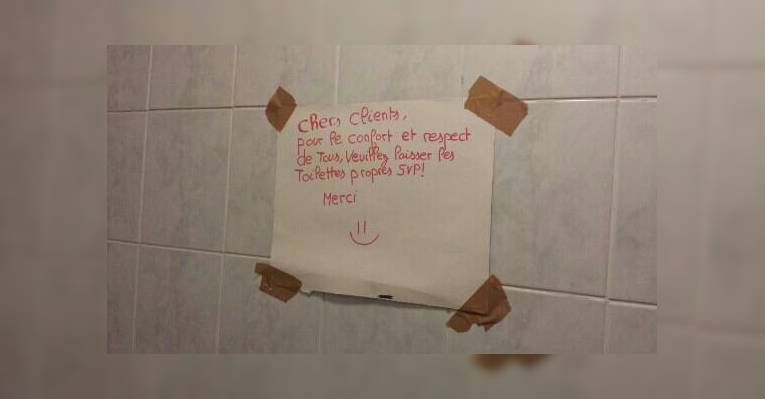 Chers Clients,
pour le confort et respect
de Tous, Veuillez laisser les
Toilettes propres SVP!
Merci